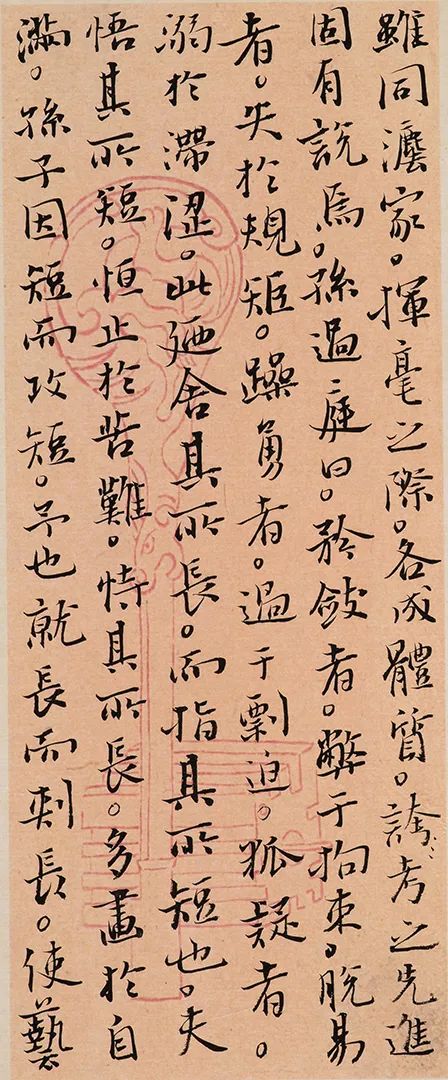 雖同灋家。揮毫之際。各成體質。考之先進
固有説焉。孫過庭曰。矜斂者。弊于拘束。脱易
者。失於規矩。躁勇者。過于剽迫。狐疑者。
溺於滯澀。此廼舍其所長。而指其所短也。夫
悟其所短。恒止於苦難。恃其所長。多畫於自
滿。孫子因短而攻短。予也就長而刺長。使藝